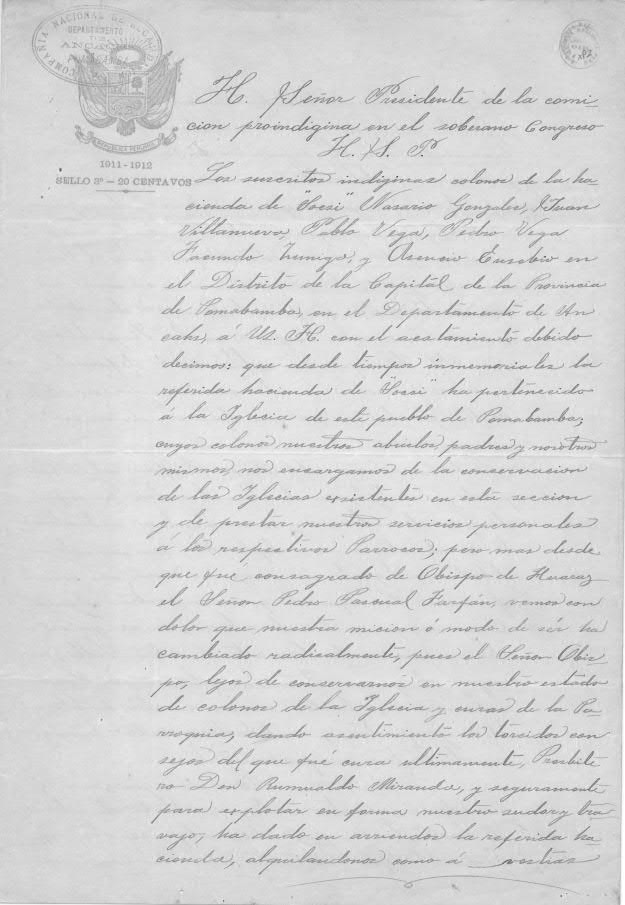 COMPAÑIA NACIONAL DE RECAUDACION
DEPARTAMENTO
DE
ANCACHS
REPUBLICA PERUANA
1911-1912
SELLO 3º - 20 CENTAVOS
H. Señor Presidente de la comi-
cion proindigina en el soberano Congreso
H. S. P.
Los suscritos indiginas colonos de la ha-
cienda de "Socsi" Nasario Gonzales, Juan
Villanueva, Pablo Vega, Pedro Vega
Facundo Zuniga, y Asencio Eusebio en
el Distrito de la Capitál de la Provincia
de Pomabamba, en el Departamento de An-
cahs, á Us. H. con el acatamiento debido
decimos: que desde tiempos inmemoriales la
referida hacienda de "Socsi" ha pertenecido
á la Iglecia de este pueblo de Pomabamba;
cuyos colonos nuestros abuelos, padres y nosotros
mismos nos encargamos de la conservacion
de las Iglecias existentes en esta seccion
y de prestar nuestros servicios personales
á los respectivos Parrocos; pero mas desde
que fué consagrado de Obispo de Huaraz
el Señor Pedro Pascual Farfán, vemos con
dolor que nuestra micion ó modo de sér ha
cambiado radicalmente, pues el Señor Obis-
po, lejos de conservarnos en nuestro estado
de colonos de la Iglecia y curas de la Pa-
rroquia, dando asentimiento los torcidos con-
sejos del que fué cura ultimamente, Presbite-
ro Don Rumualdo Miranda, y seguramente
para explotar en forma nuestro sudor y tra-
vajo; ha dado en arriendos la referida ha-
cienda, alquilandonos como á vestias